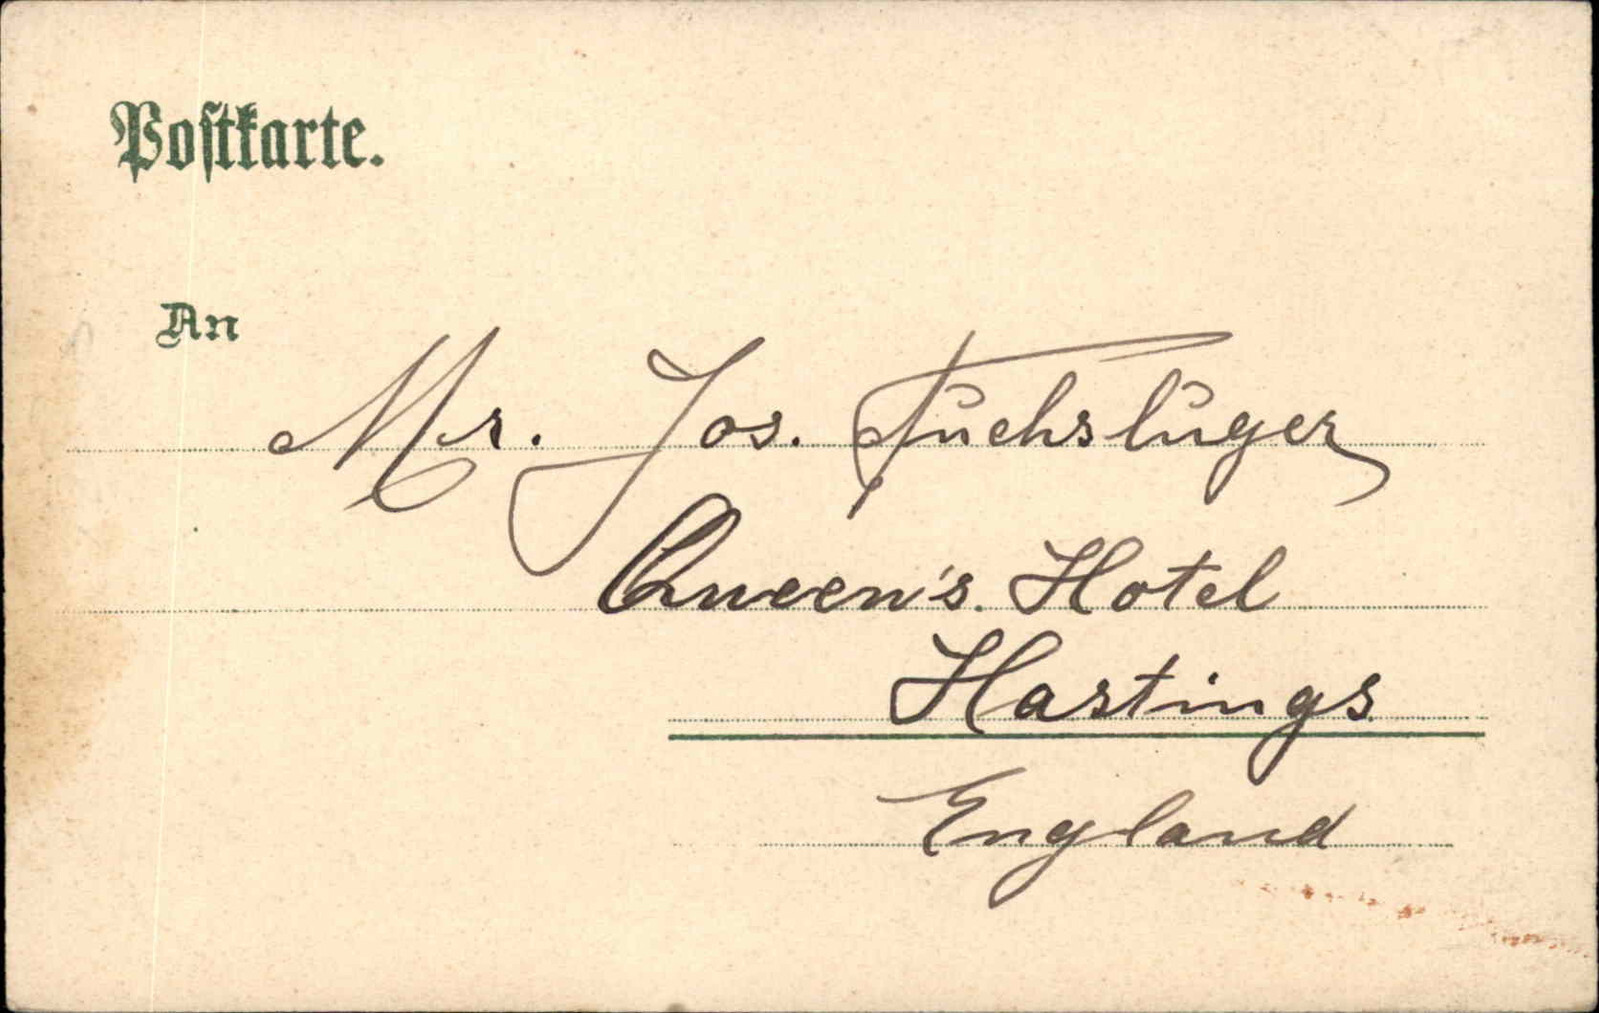 Postkarte.
An
Mr. Jos. Fuchsluger
Queen's Hotel
Hastings
England